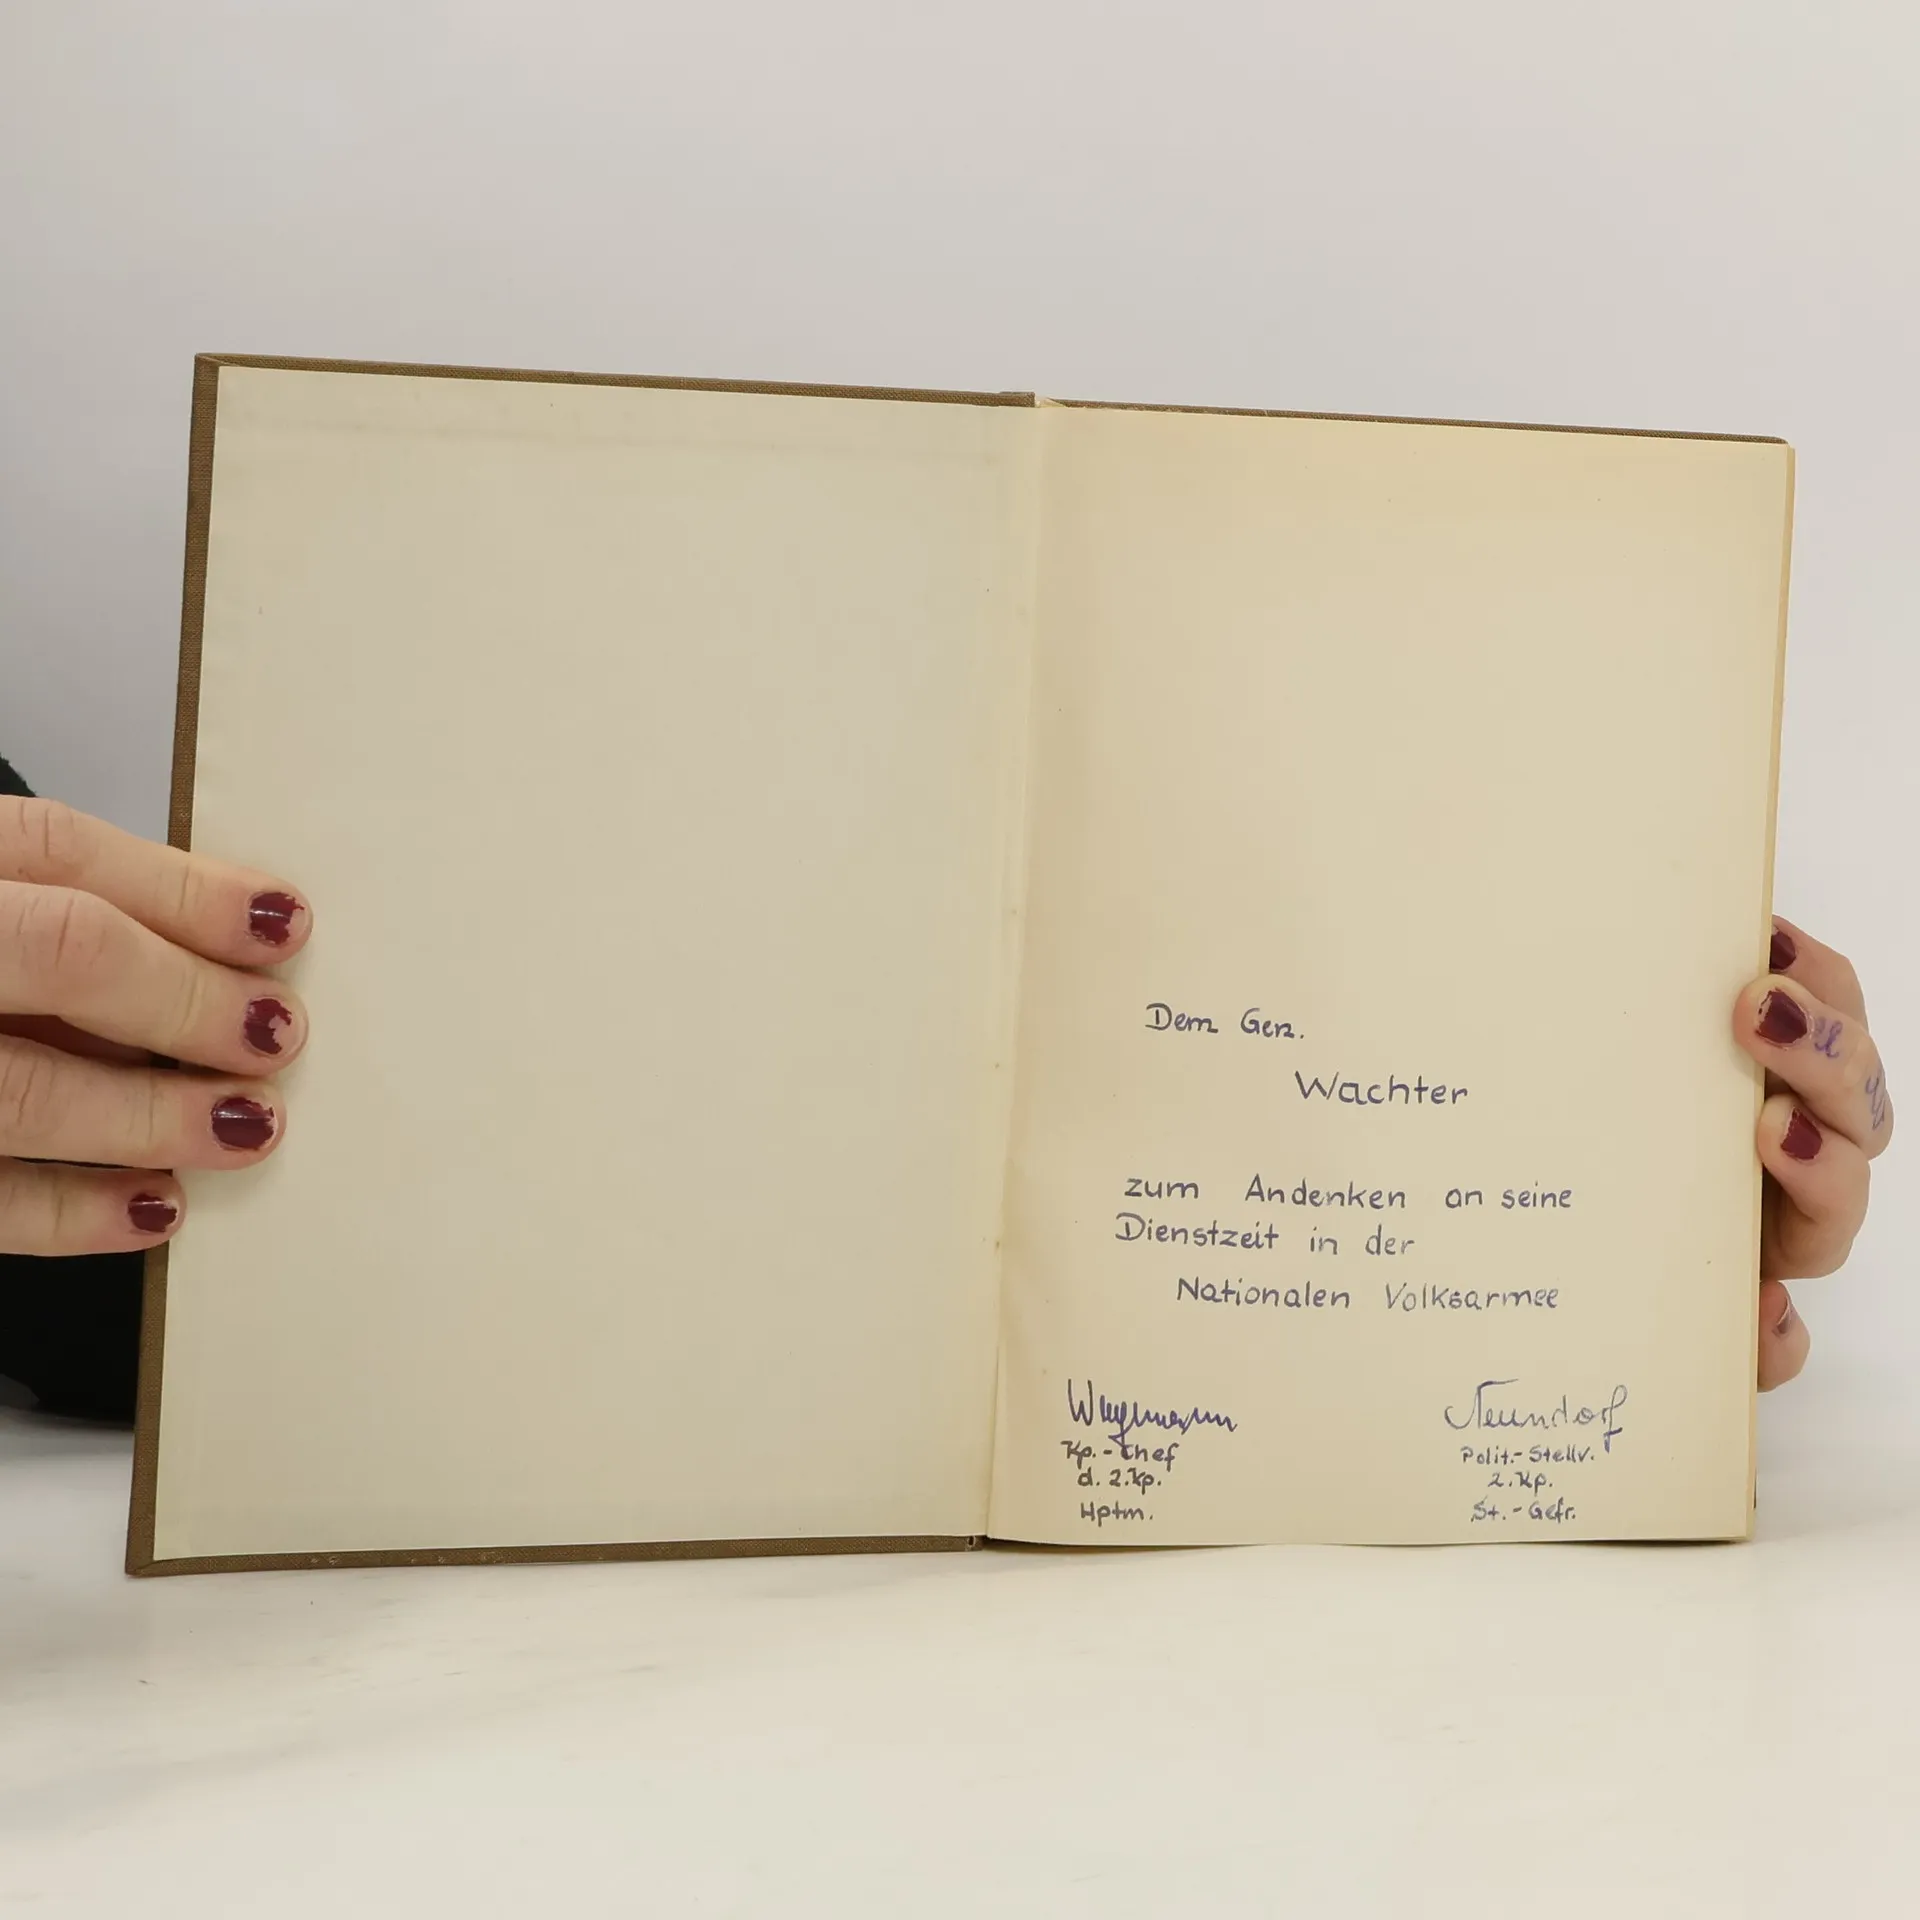 Dem Gen.
Wachter
zum Andenken an seine
Dienstzeit in der
Nationalen Volksarmee
Neundorf
Kp.-Chef
d. 2.Kp.
Hptm.
Polit.-Stellv.
2.Kp.
St.-Gefr.